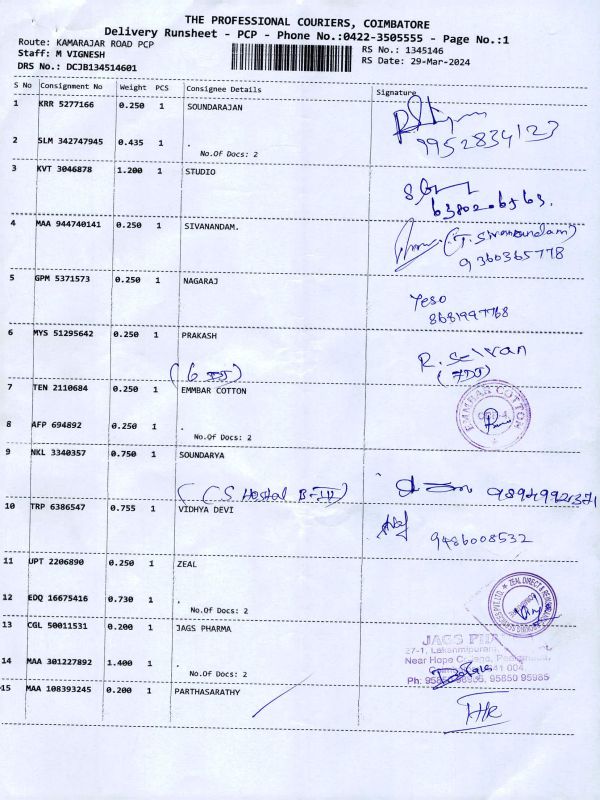 THE PROFESSIONAL COURIERS, COIMBATORE
Delivery Runsheet - PCP - Phone No.:0422-3505555 - Page No.:1
Route: KAMARAJAR ROAD PCP
RS No.: 1345146
Staff: M VIGNESH
RS Date: 29-Mar-2024
DRS No.: DCJB134514601
S No Consignment No Weight PCS Consignee Details Signature
1 KRR 5277166 0.250 1 SOUNDARAJAN
9952834123
2 SLM 342747945 0.435 1 .
No.Of Docs: 2
3 KVT 3046878 1.200 1 STUDIO
6380206563.
4 MAA 944740141 0.250 1 SIVANANDAM.
(T. Sivanandam)
9360365778
5 GPM 5371573 0.250 1 NAGARAJ
Yeso
8681997768
6 MYS 51295642 0.250 1 PRAKASH
R. Selvan
7 TEN 2110684 0.250 1 EMMBAR COTTON
EMMBAR COTTON
8 AFP 694892 0.250 1 .
No.Of Docs: 2
9 NKL 3340357 0.750 1 SOUNDARYA
(CS Hostal B-III)
10 TRP 6386547 0.755 1 VIDHYA DEVI
9486008532
11 UPT 2206890 0.250 1 ZEAL
12 EDQ 16675416 0.730 1 .
No.Of Docs: 2
13 CGL 50011531 0.200 1 JAGS PHARMA
JAGS
27-1, Lakshmipuram,
Near Hope College,
641 004.
95650 95985
14 MAA 301227892 1.400 1 .
No.Of Docs: 2
15 MAA 108393245 0.200 1 PARTHASARATHY